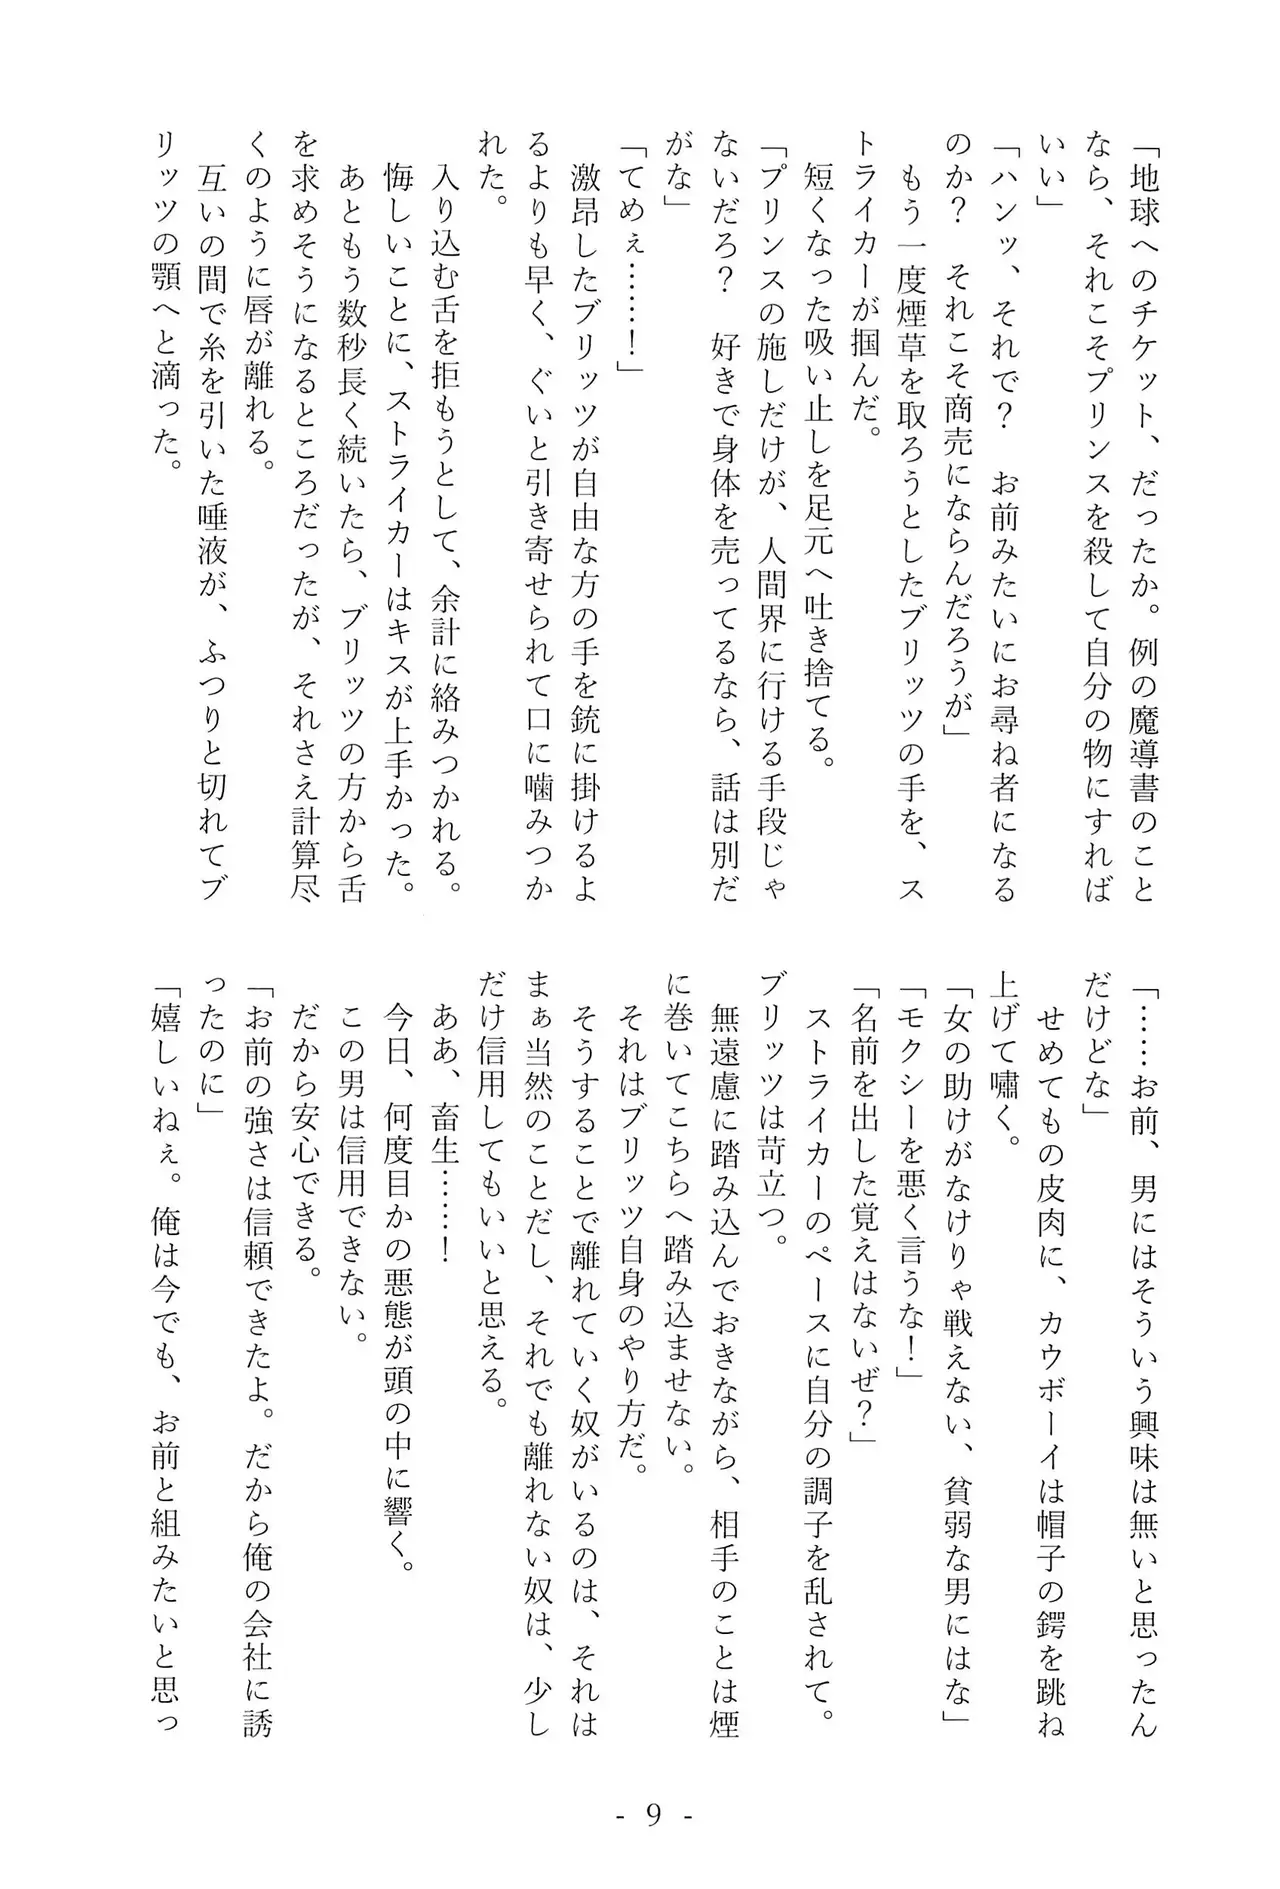 「地球へのチケット、だったか。例の魔導書のこと
なら、それこそプリンスを殺して自分の物にすれば
いい」
「ハンッ、それで？　お前みたいにお尋ね者になる
のか？　それこそ商売にならんだろうが」
　もう一度煙草を取ろうとしたブリッツの手を、ス
トライカーが掴んだ。
　短くなった吸い止しを足元へ吐き捨てる。
「プリンスの施しだけが、人間界に行ける手段じゃ
ないだろ？　好きで身体を売ってるなら、話は別だ
がな」
「てめぇ……！」
　激昂したブリッツが自由な方の手を銃に掛けるよ
るよりも早く、ぐいと引き寄せられて口に噛みつか
れた。
　入り込む舌を拒もうとして、余計に絡みつかれる。
　悔しいことに、ストライカーはキスが上手かった。
　あともう数秒長く続いたら、ブリッツの方から舌
を求めそうになるところだったが、それさえ計算尽
くのように唇が離れる。
　互いの間で糸を引いた唾液が、ふつりと切れてブ
リッツの顎へと滴った。
「……お前、男にはそういう興味は無いと思ったん
だけどな」
　せめてもの皮肉に、カウボーイは帽子の鍔を跳ね
上げて嘯く。
「女の助けがなけりゃ戦えない、貧弱な男にはな」
「モクシーを悪く言うな！」
「名前を出した覚えはないぜ？」
　ストライカーのペースに自分の調子を乱されて。
ブリッツは苛立つ。
　無遠慮に踏み込んでおきながら、相手のことは煙
に巻いてこちらへ踏み込ませない。
　それはブリッツ自身のやり方だ。
　そうすることで離れていく奴がいるのは、それは
まぁ当然のことだし、それでも離れない奴は、少し
だけ信用してもいいと思える。
　ああ、畜生……！
　今日、何度目かの悪態が頭の中に響く。
　この男は信用できない。
　だから安心できる。
「お前の強さは信頼できたよ。だから俺の会社に誘
ったのに」
「嬉しいねぇ。俺は今でも、お前と組みたいと思っ
- 9 -